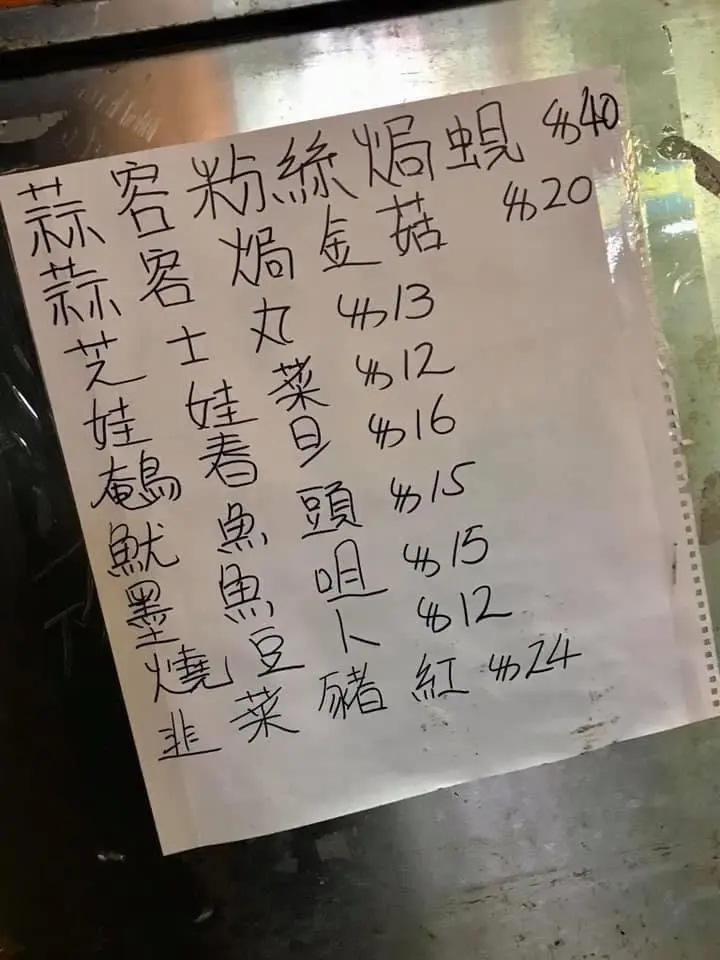 蒜容粉絲焗蜆 $40
蒜客焗金菇 $20
芝士丸 $13
娃娃菜 $12
鵪春旦 $16
魷魚頭 $15
墨魚咀 $15
燒豆卜 $12
韭菜豬紅 $24